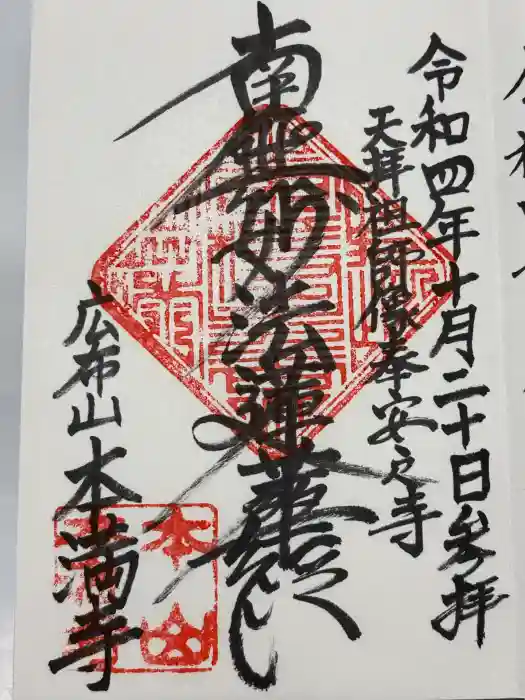 令和四年十月二十日参拝
天拝祖師像奉安之寺
南無妙法蓮華経
広布山 本満寺
本山